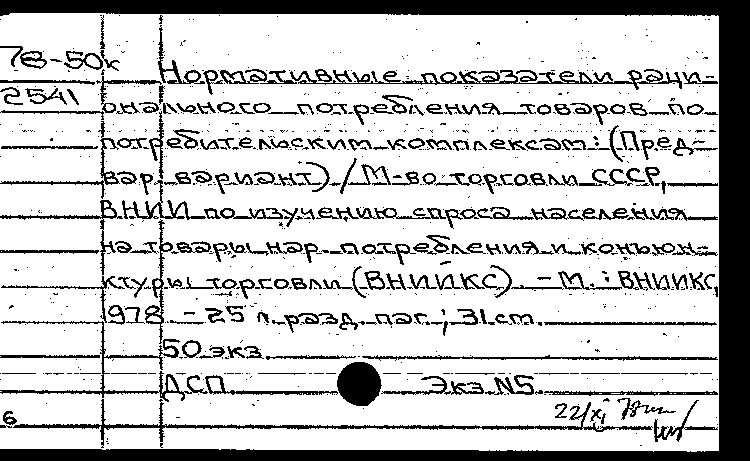 78-50к Нормативные показатели раци-
2541 онального потребления товаров по
потребительским комплексам: (Пред-
вар. вариант) / М-во торговли СССР,
ВНИИ по изучению спроса населения
на товары нар. потребления и конъюн-
ктуры торговли (ВНИИКС). - М. : ВНИИКС,
1978. - 25 л. разд. паг. ; 31 cm.
50 экз.
ДСП. Экз. N5.
22/XI
6